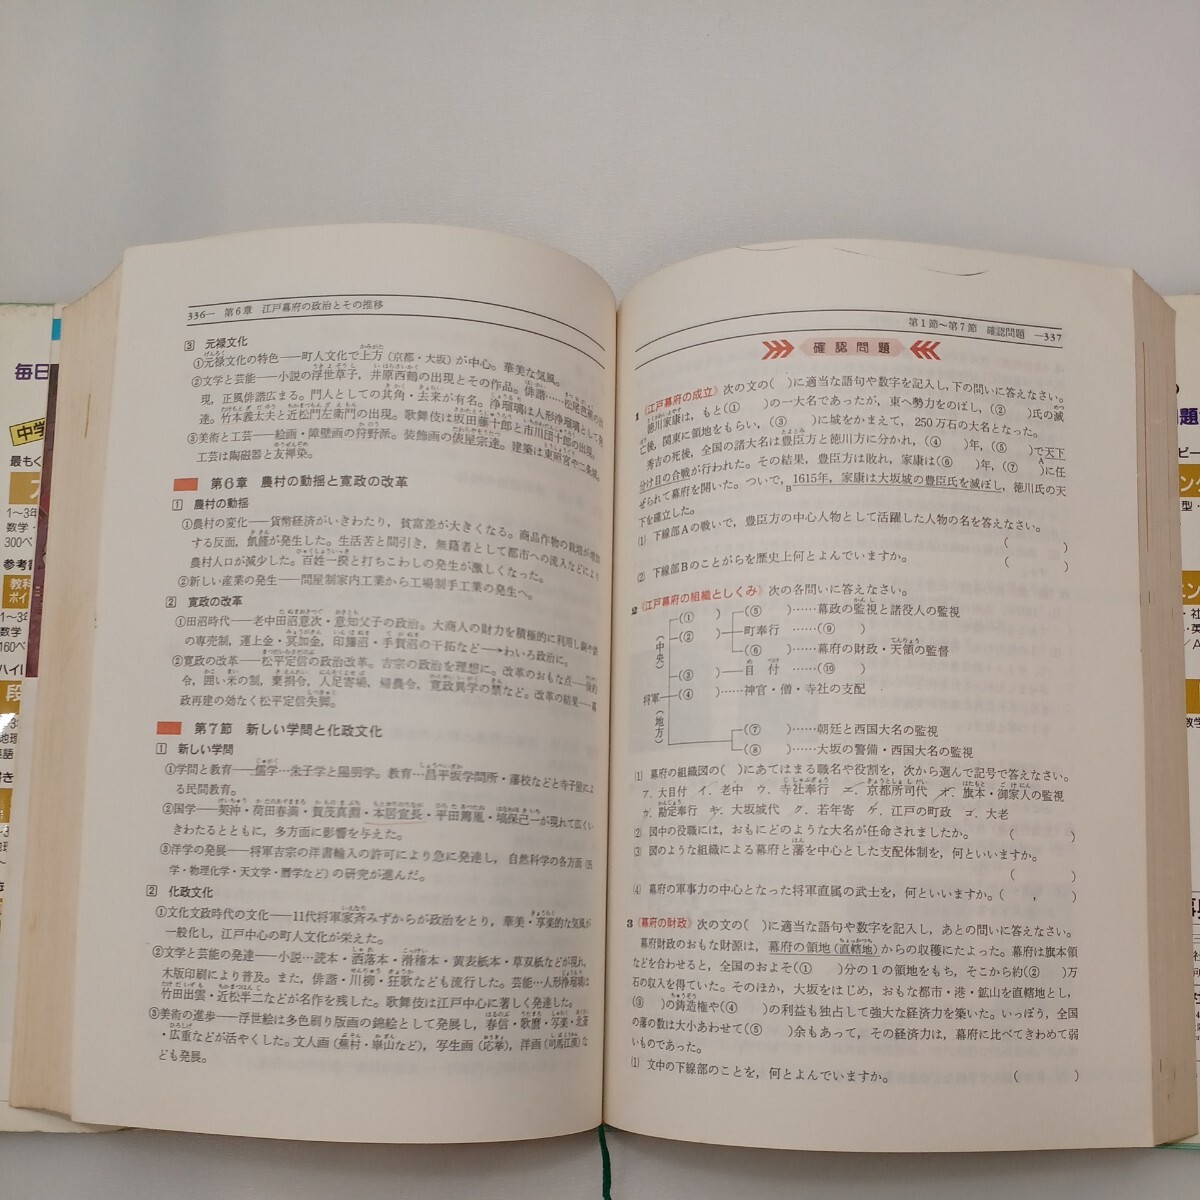 336— 第6章 江戸幕府の政治とその推移
3 元禄文化
①元禄文化の特色——町人文化で上方（京都・大坂）が中心。華美な気風。
②文学と芸能——小説の浮世草子，井原西鶴の出現とその作品。俳諧……松尾芭蕉の出
現，正風俳諧広まる。門人としての其角・去来が有名。浄瑠璃は人形浄瑠璃として発
達。竹本義太夫と近松門左衛門の出現。歌舞伎は坂田藤十郎と市川団十郎の出現。
③美術と工芸——絵画・障壁画の狩野派。装飾画の俵屋宗達。建築は東照宮や二条城。
工芸は陶磁器と友禅染。
第6章 農村の動揺と寛政の改革
1 農村の動揺
①農村の変化——貨幣経済がいきわたり，貧富差が大きくなる。商品作物の栽培が増加
する反面，飢饉が発生した。生活苦と間引き，無籍者として都市への流入などにより
農村人口が減少した。百姓一揆と打ちこわしの発生が激しくなった。
②新しい産業の発生——問屋制家内工業から工場制手工業の発生へ。
2 寛政の改革
①田沼時代——老中田沼意次・意知父子の政治。大商人の財力を積極的に利用し銅や鉄
の専売制，運上金・冥加金，印旛沼・手賀沼の干拓など→わいろ政治に。
②寛政の改革——松平定信の政治改革。吉宗の政治を理想に。改革のおもな点——倹約
令，囲い米の制，棄捐令，人足寄場，帰農令，寛政異学の禁など。改革の結果—幕
政再建の効なく松平定信失脚。
第7節 新しい学問と化政文化
1 新しい学問
①学問と教育——儒学…朱子学と陽明学。教育…昌平坂学問所・藩校などと寺子屋によ
る民間教育。
②国学——契沖・荷田春満・賀茂真淵・本居宣長・平田篤胤・塙保己一が現れて広くい
きわたるとともに，多方面に影響を与えた。
③洋学の発展——将軍吉宗の洋書輸入の許可により急に発達し，自然科学の各方面（医
学・物理化学・天文学・暦学など）の研究が進んだ。
2 化政文化
①文化文政時代の文化——11代将軍家斉みずからが政治をとり，華美・享楽的な気風が
一般化し，江戸中心の町人文化が栄えた。
②文学と芸能の発達——小説…読本・洒落本・滑稽本・黄表紙本・草双紙などが現れ，
木版印刷により普及。また，俳諧・川柳・狂歌なども流行した。芸能…人形浄瑠璃は
竹田出雲・近松半二などが名作を残した。歌舞伎は江戸中心に著しく発達した。
③美術の進歩——浮世絵は多色刷り版画の錦絵として発展し，春信・歌麿・写楽・北斎
・広重などが活やくした。文人画（蕪村・崋山など），写生画（応挙），洋画（司馬江漢）な
ども発展。
第1節〜第7節 確認問題 —337
確認問題
1 《江戸幕府の成立》 次の文の（ ）に適当な語句や数字を記入し，下の問いに答えなさい。
徳川家康は，もと（① ）の一大名であったが，東へ勢力をのばし，（② ）氏の滅
亡後，関東に領地をもらい，（③ ）に城をかまえて，250万石の大名となった。
秀吉の死後，全国の諸大名は豊臣方と徳川方に分かれ，（④ ）年，（⑤ ）で天下
分け目の合戦が行われた。その結果，豊臣方は敗れ，家康は（⑥ ）年，（⑦ ）に任
ぜられて幕府を開いた。ついで，B1615年，家康は大坂城の豊臣氏を滅ぼし，徳川氏の天
下を確立した。
(1) 下線部Aの戦いで，豊臣方の中心人物として活躍した人物の名を答えなさい。
（ ）
(2) 下線部Bのことがらを歴史上何とよんでいますか。 （ ）
2 《江戸幕府の組織としくみ》 次の各問いに答えなさい。
（① ） （⑤ ）……幕政の監視と諸役人の監視
（中央） （② ） 町奉行 ……（⑨ ）
（⑥ ）……幕府の財政・天領の監督
（③ ） 目付 ……（⑩ ）
将軍 （④ ）……神官・僧・寺社の支配
（地方） （⑦ ）……朝廷と西国大名の監視
（⑧ ）……大坂の警備・西国大名の監視
(1) 幕府の組織図の（ ）にあてはまる職名や役割を，次から選んで記号で答えなさい。
ア．大目付 イ．老中 ウ．寺社奉行 エ．京都所司代 オ．旗本・御家人の監視
カ．勘定奉行 キ．大坂城代 ク．若年寄 ケ．江戸の町政 コ．大老
(2) 図中の役職には，おもにどのような大名が任命されましたか。 （ ）
(3) 図のような組織による幕府と藩を中心とした支配体制を，何といいますか。
（ ）
(4) 幕府の軍事力の中心となった将軍直属の武士を，何といいますか。（ ， ）
3 《幕府の財政》 次の文の（ ）に適当な語句や数字を記入し，あとの問いに答えなさい。
幕府財政のおもな財源は，幕府の領地（直轄地）からの収穫にたよった。幕府は旗本領
などを合わせると，全国のおよそ（① ）分の1の領地をもち，そこから約（② ）万
石の収入を得ていた。そのほか，大坂をはじめ，おもな都市・港・鉱山を直轄地とし，
（③ ）の鋳造権や（④ ）の利益も独占して強大な経済力を築いた。いっぽう，全国
の藩の数は大小あわせて（⑤ ）余もあって，その経済力は，幕府に比べてきわめて弱
いものであった。
(1) 文中の下線部のことを，何とよんでいますか。 （ ）
毎日
中学
最もく
1〜3年
数学・
300ペ
参考書
教科
ポイ
1〜3年
数学
160ペ
ハイレ
段
題
ピー